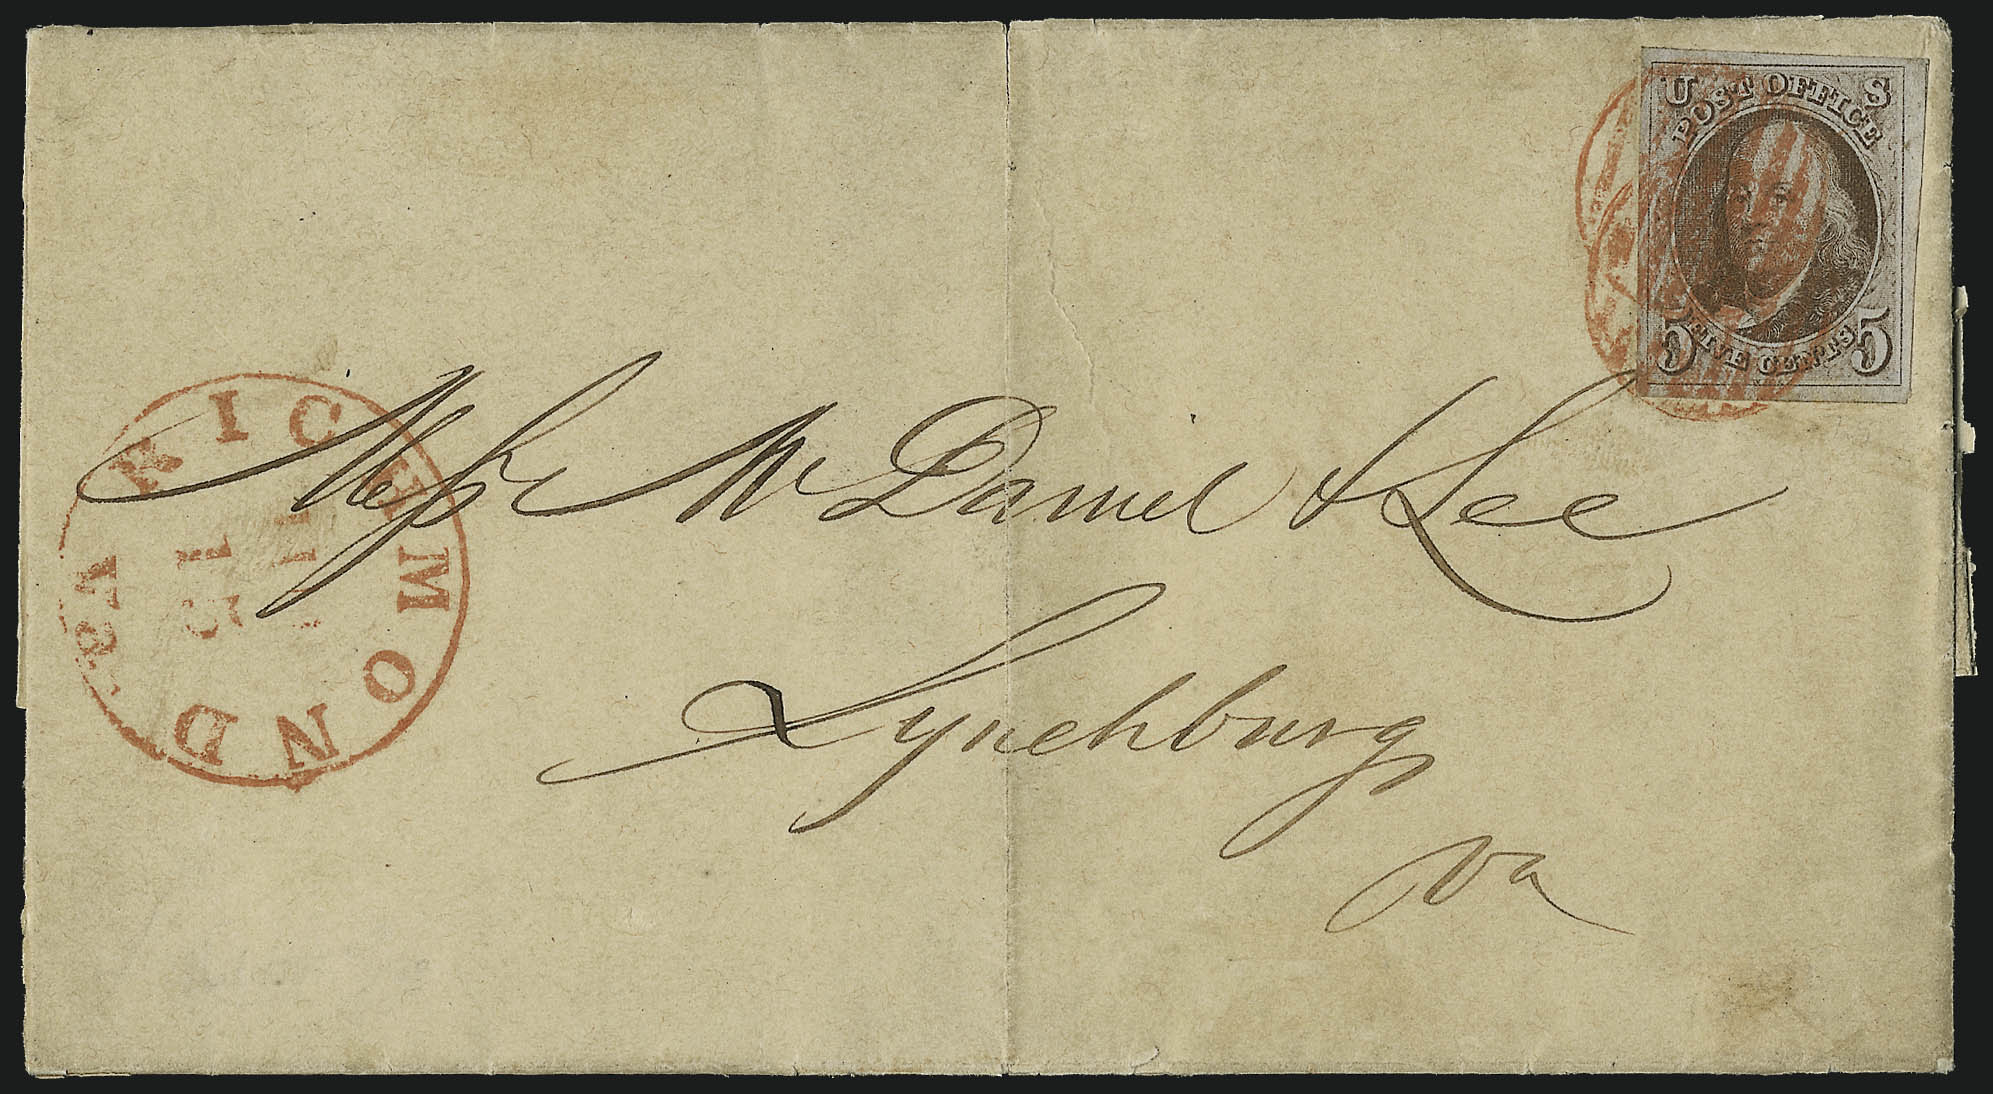 U S
POST OFFICE
5 FIVE CENTS 5
RICHMOND Va.
15
Messrs McDaniel & Lee
Lynchburg
Va